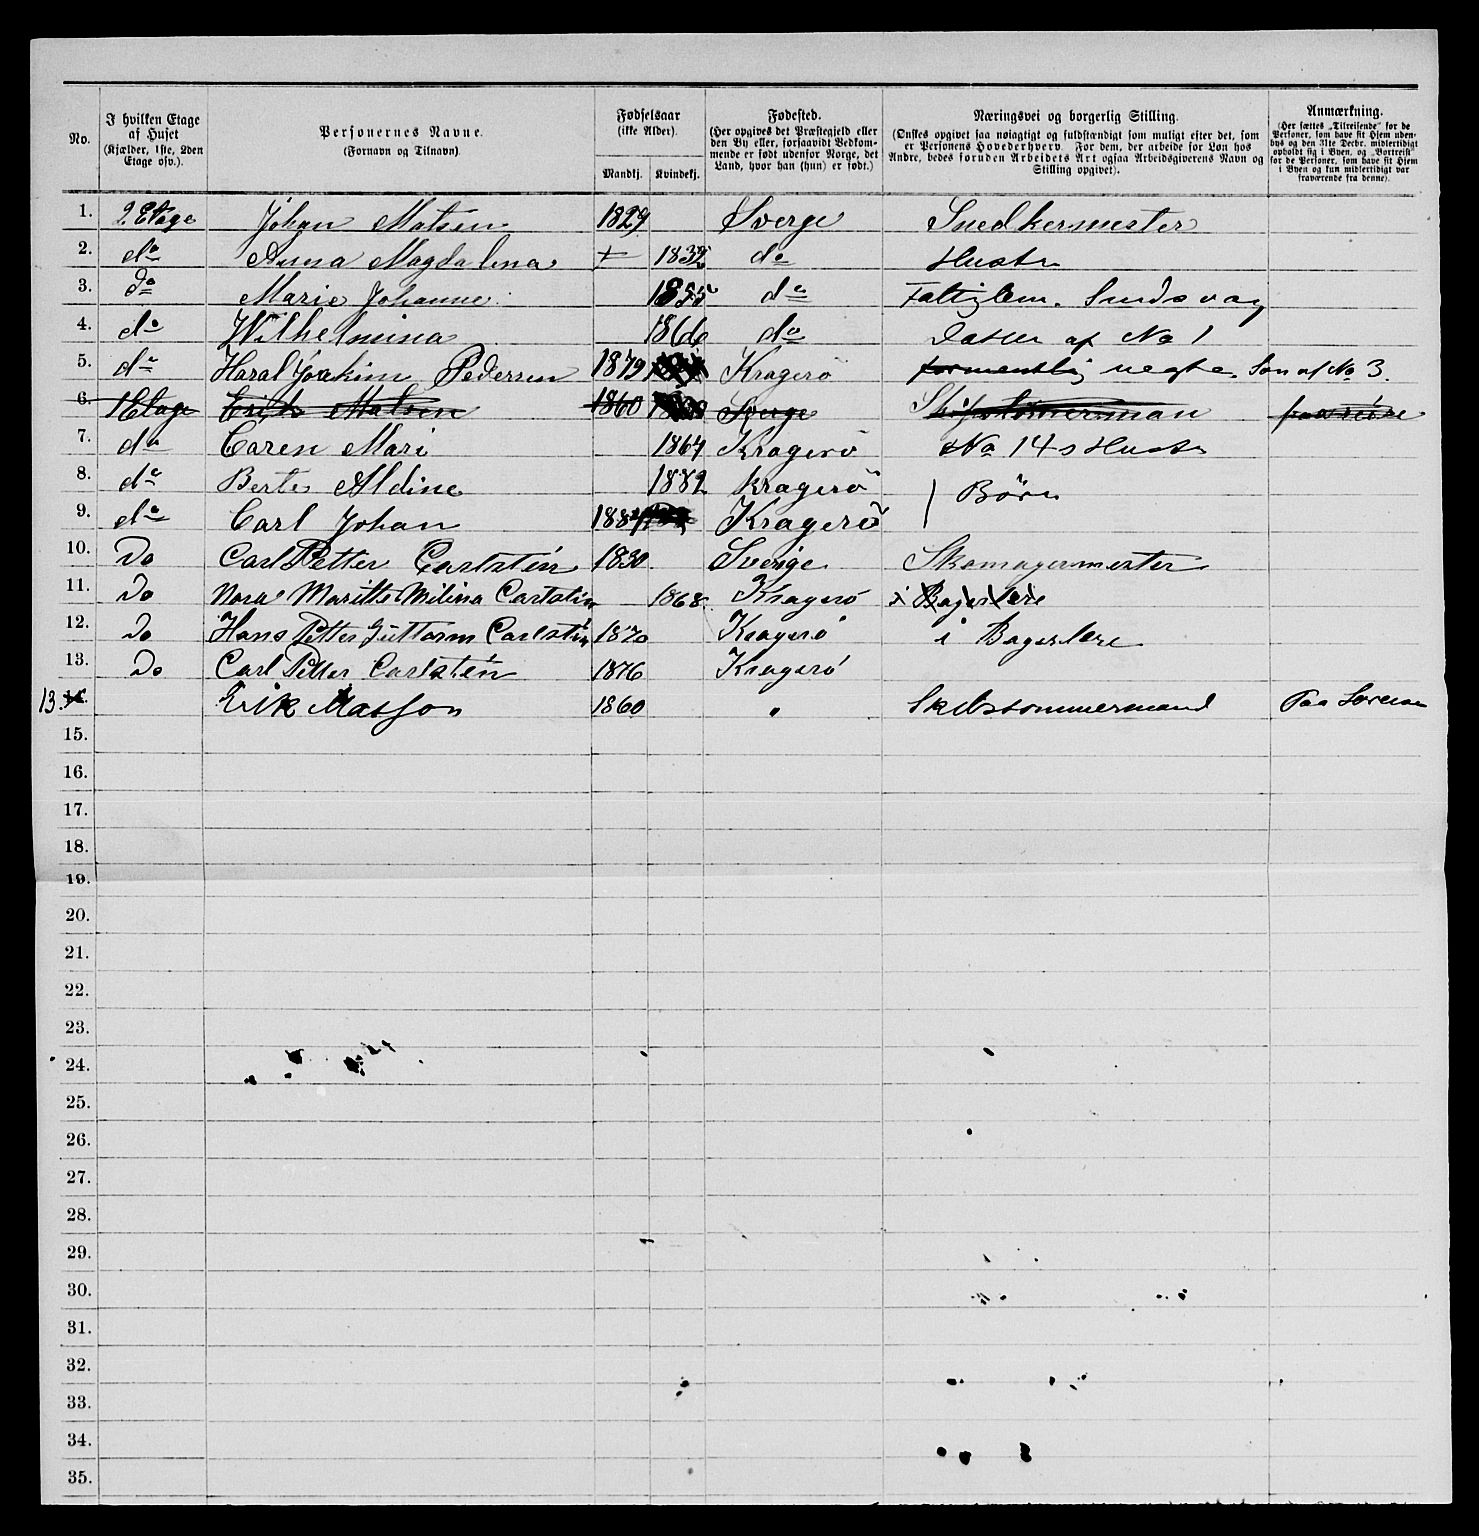 No.
I hvilken Etage af Huset (Kjælder, 1ste, 2den Etage osv.).
Personernes Navne. (Fornavn og Tilnavn).
Fødselsaar (ikke Alder).
Mandkj. Kvindekj.
Fødested. (Her opgives det Præstegjeld eller den By eller, forsaavidt Vedkommende er født udenfor Norge, det Land, hvor han (hun) er født.)
Næringsvei og borgerlig Stilling. (Ønskes opgivet saa nøiagtigt og fuldstændigt som muligt efter det, som er Personens Hovederhverv. For dem, der arbeide for Løn hos Andre, bedes foruden Arbeidets Art ogsaa Arbeidsgiverens Navn og Stilling opgivet).
Anmærkning. (Her sættes „Tilreisende" for de Personer, som have sit Hjem udenbys og den 31te Decbr. midlertidigt opholdt sig i Byen, og „Bortreist" for de Personer, som have sit Hjem i Byen og kun midlertidigt var fraværende fra denne).
1. 2 Etage Johan Matsen 1829 Sverge Snedkermester
2. do Anna Magdalena + 1832 do Hustr
3. do Marie Johanne 1855 do Fattiglem. Sindsvag
4. do Wilhelmina 1866 do Datter af No 1
5. do Haral Joakim Pedersen 1879 Kragerø formentlig uegte. Søn af No 3.
6. 1 Etage Erik Matsen 1860 Sverge Skibstømmerman
7. do Caren Mari 1864 Kragerö No 14s Hustr
8. do Berte Aldine 1882 Kragerö Børn
9. do Carl Johan 1884 Kragerö
10. Do Carl Petter Carlstén 1830 Sverige Skomagermester
11. Do Nora Maritte Milina Carlstén 1868 Kragerø i Bagerlære
12. Do Hans Petter Guttorm Carlstén 1870 Kragerø i Bagerlære
13. Do Carl Petter Carlstén 1876 Kragerø
13. 14. Erik Matsson 1860 " Skibstømmermand Paa Søreise
15.
16.
17.
18.
19.
20.
21.
22.
23.
24.
25.
26.
27.
28.
29.
30.
31.
32.
33.
34.
35.